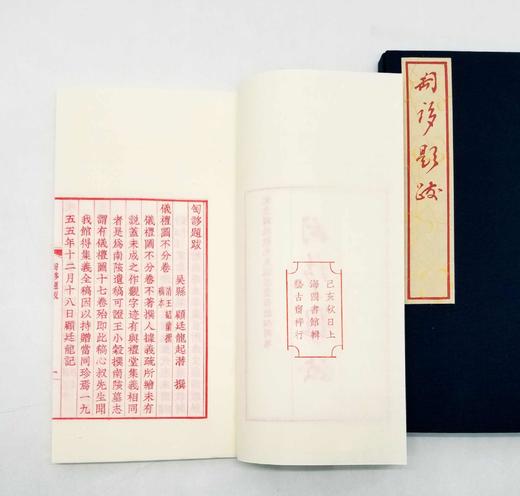 匋誃題跋
己亥秋日上
海圖書館輯
藝古齋梓行
匋誃題跋
吳縣 顧廷龍起潛 撰
儀禮圖不分卷 清王紹蘭撰 稿本
儀禮圖不分卷不著撰人據義疏所繪未有
說蓋未成之作觀字迹有與禮堂集義相同
者是為南陔遺稿可證王小穀撰南陔墓志
謂有儀禮圖十七卷殆即此稿心叔先生聞
我館得集義全稿因以持贈當同珍焉一九
五五年十二月十八日顧廷龍記
匋誃題跋
一